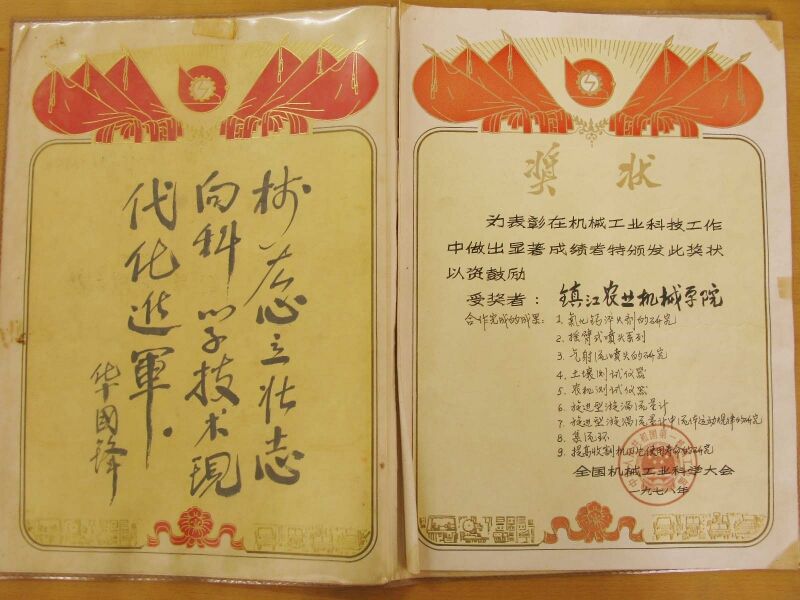 树雄心立壮志
向科学技术现
代化进軍。
华国锋
奖状
为表彰在机械工业科技工作
中做出显著成绩者特颁发此奖状
以资鼓励
受奖者：镇江农业机械学院
合作完成的成果：1. 氯化锡淬火剂的研究
2. 摇臂式喷头系列
3. 气射流喷头的研究
4. 土壤测试仪器
5. 农机测试仪器
6. 旋进型漩涡流量计
7. 旋进型漩涡流量计中流体运动规律的研究
8. 集流环
9. 提高收割机刀片使用寿命的研究
全国机械工业科学大会
一九七八年